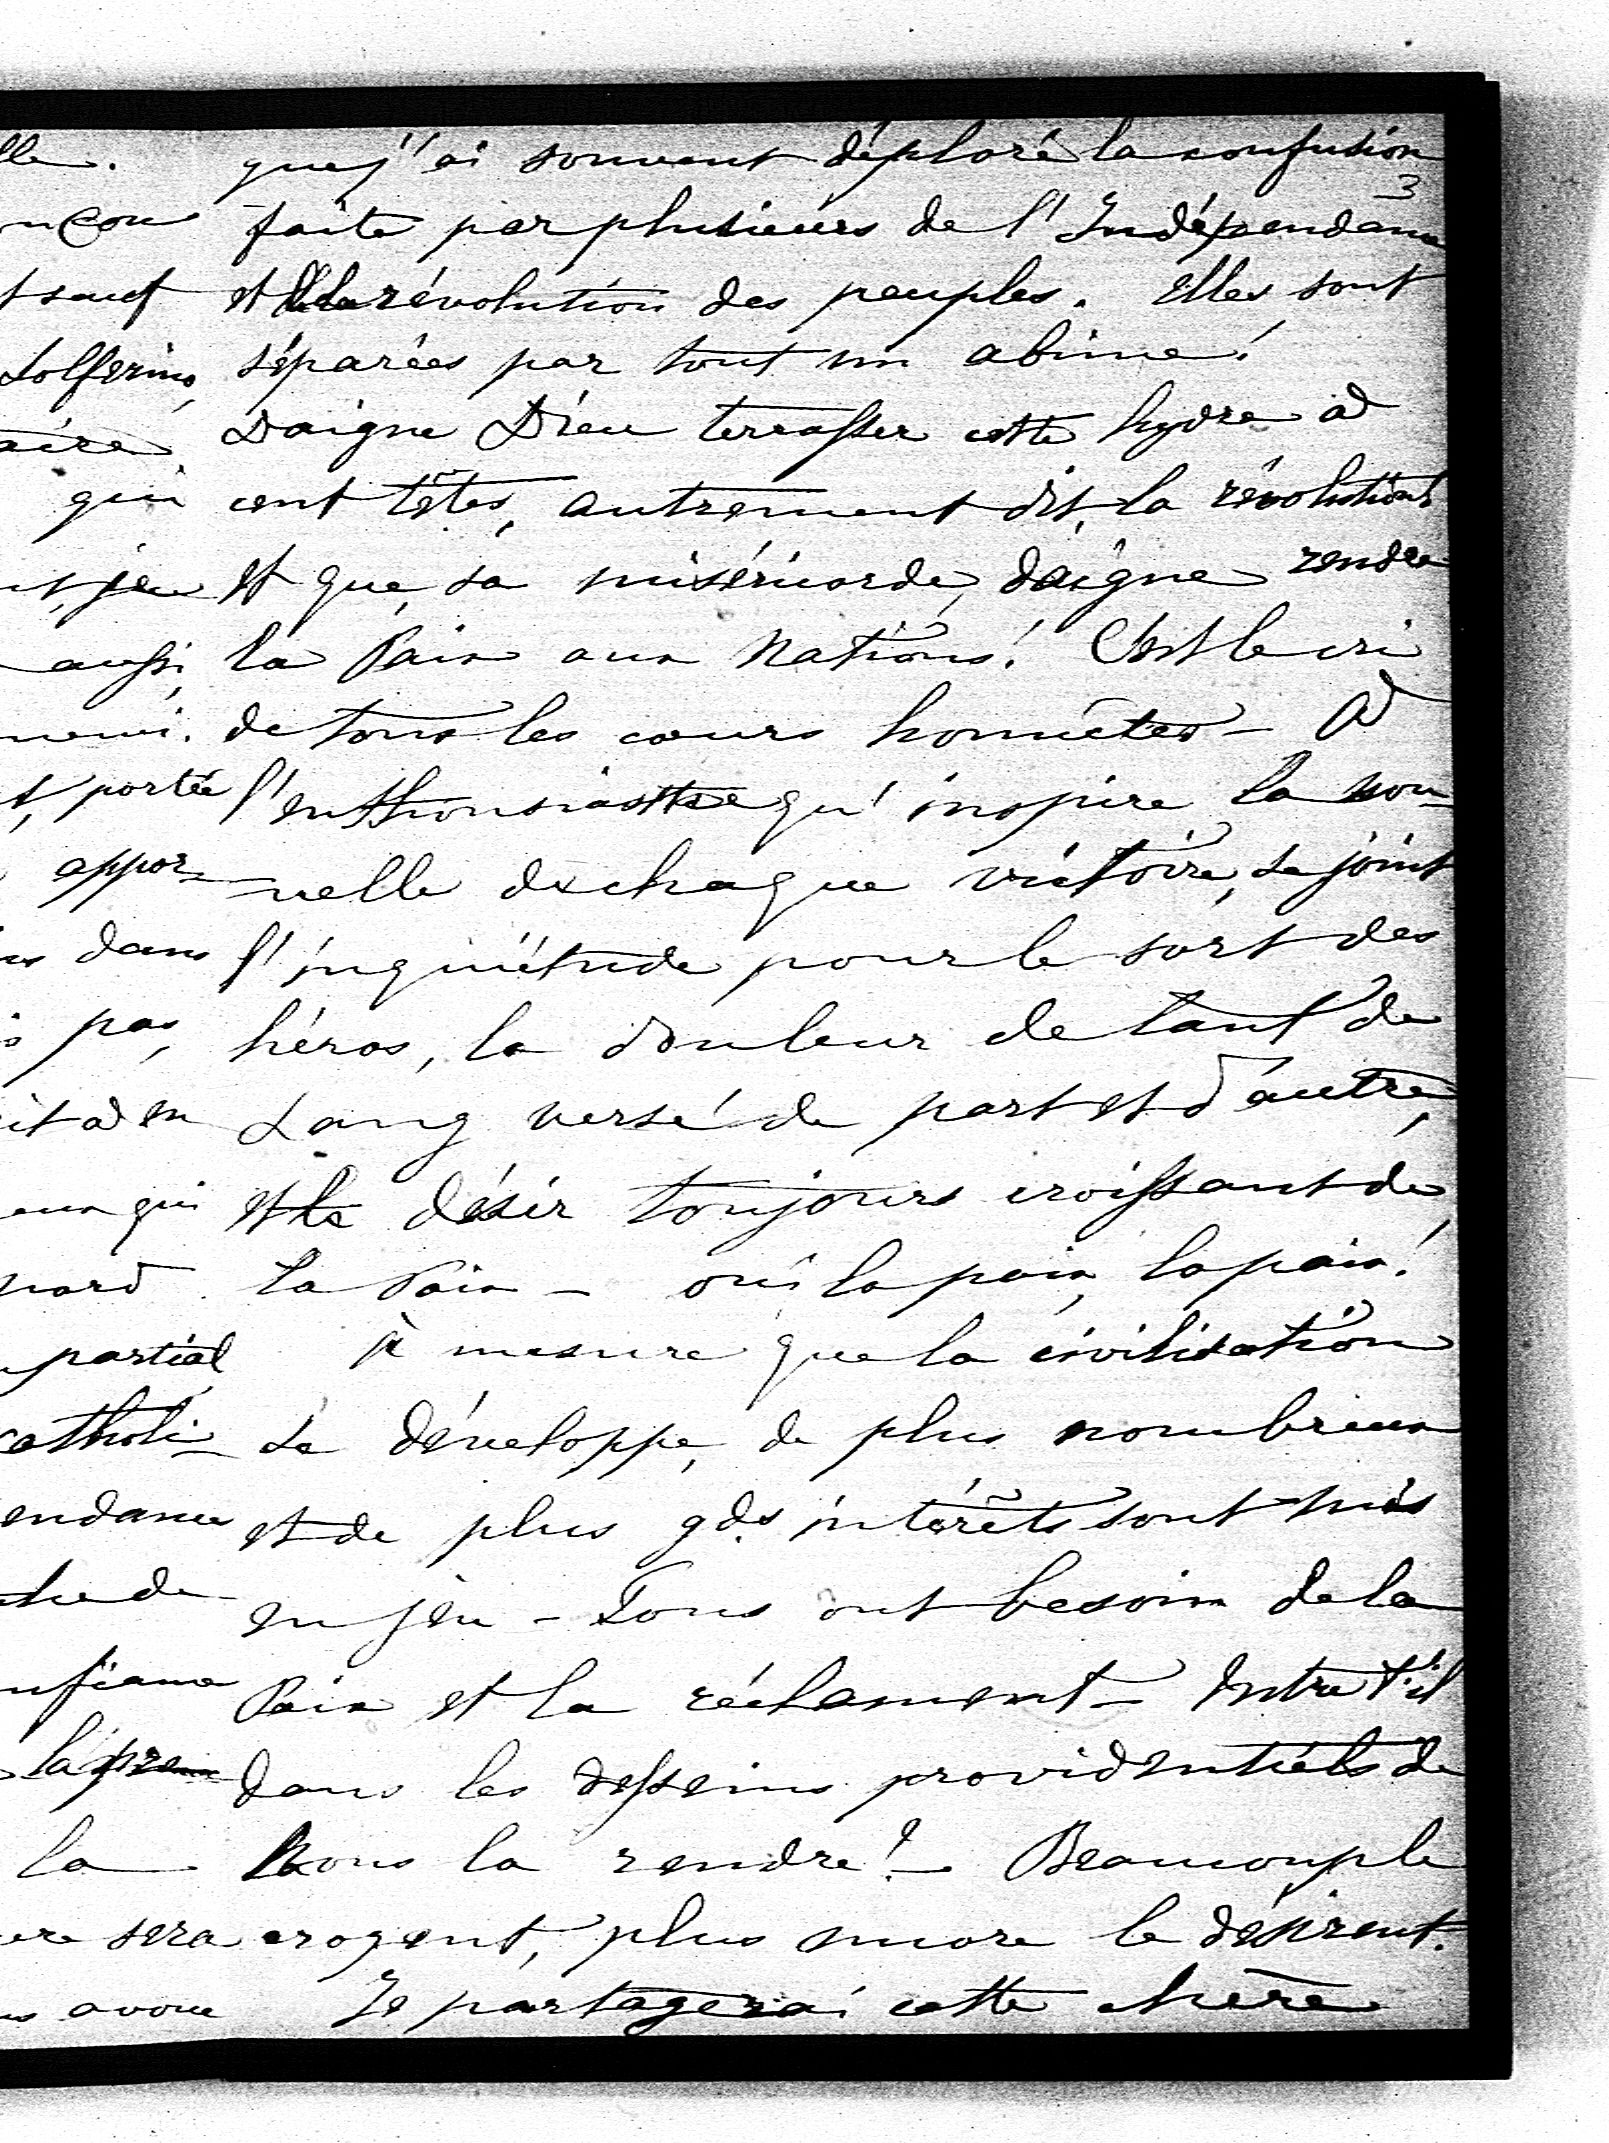 lle.
nçon
t sauf
Solferino,
aire
qui
aussi,
portée
appor-
dans
pas,
it à en
eux qui
nard
partial
catholi-
endance
nfiance
la
sera
avoue
3
que j'ai souvent déploré la confusion
faite par plusieurs de l'Indépendance
et de la révolution des peuples. Elles sont
séparées par tout un abime!
Daigne Dieu terrasser cette hydre à
cent têtes, autrement dit, la révolution
et que, sa miséricorde, daigne rendre
la Paix aux Nations! C'est le cri
de tous les cœurs honnêtes - A
l'enthousiasme qu'inspire la nou-
velle de chaque victoire, se joint
l'inquiétude pour le sort des
héros, la douleur de tant de
sang versé de part et d'autre,
et le désir toujours croissant de
la Paix - oui la paix, la paix!
à mesure que la civilisation
se développe, de plus nombreux
et de plus gds. intérêts sont mis
en jeu - Tous ont besoin de la
Paix et la réclament - Entre t'il
dans les desseins providentiels de
nous la rendre? - Beaucoup le
croyent, plus encore le désirent.
Je partagerai cette chère